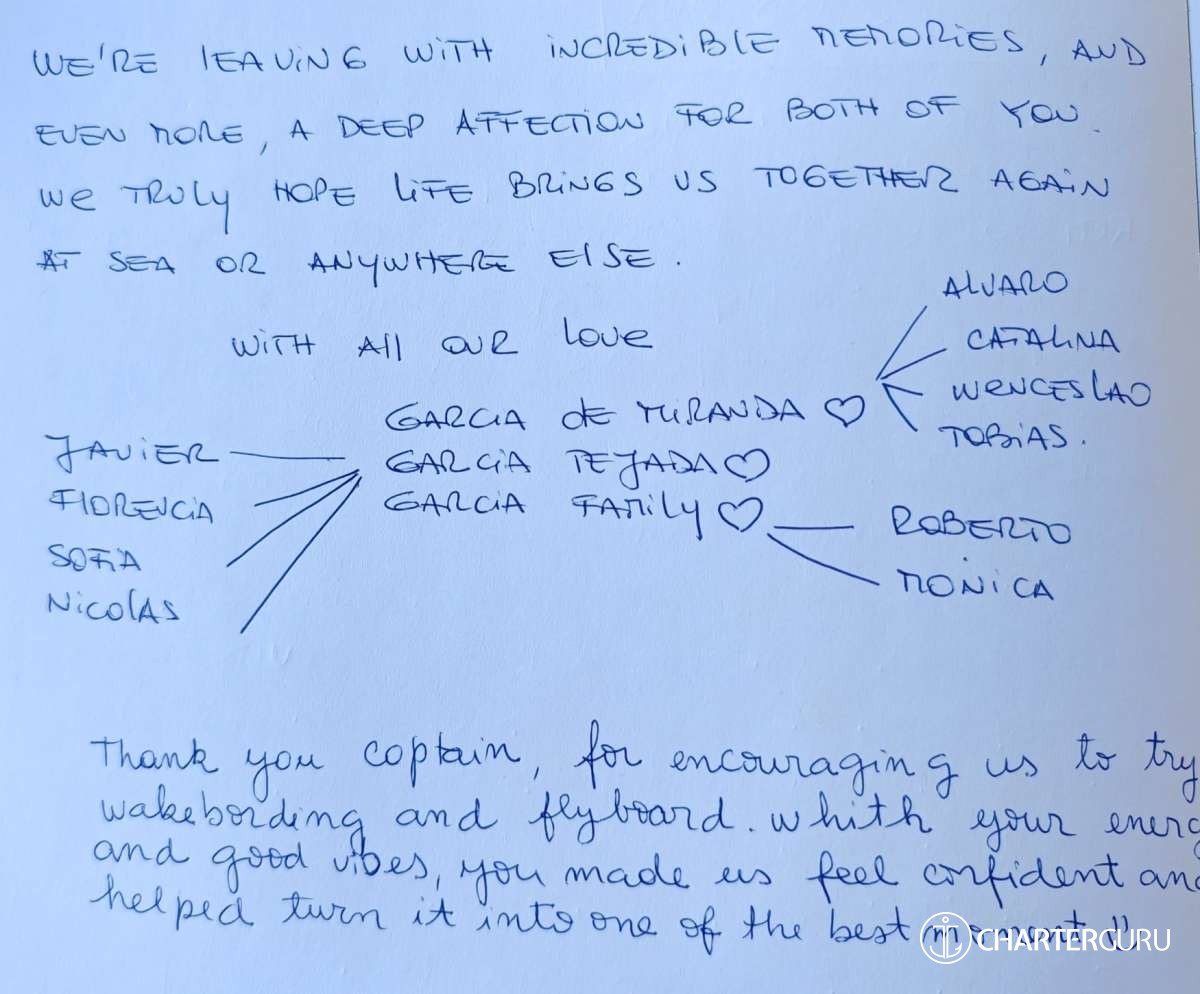 WE'RE LEAVING WITH INCREDIBLE MEMORIES, AND
EVEN MORE, A DEEP AFFECTION FOR BOTH OF YOU.
WE TRULY HOPE LIFE BRINGS US TOGETHER AGAIN
AT SEA OR ANYWHERE ELSE.
WITH All OUR LOVE
GARCIA de MIRANDA ♡
ALVARO
CATALINA
WENCESLAO
TOBIAS.
GARCIA TEJADA ♡
JAVIER
FLORENCIA
SOFIA
NICOLAS
GARCIA FAMILY ♡
ROBERTO
MONICA
Thank you captain, for encouraging us to try
wakebording and flyboard. whith your energ
and good vibes, you made us feel confident and
helped turn it into one of the best
CHARTERGURU